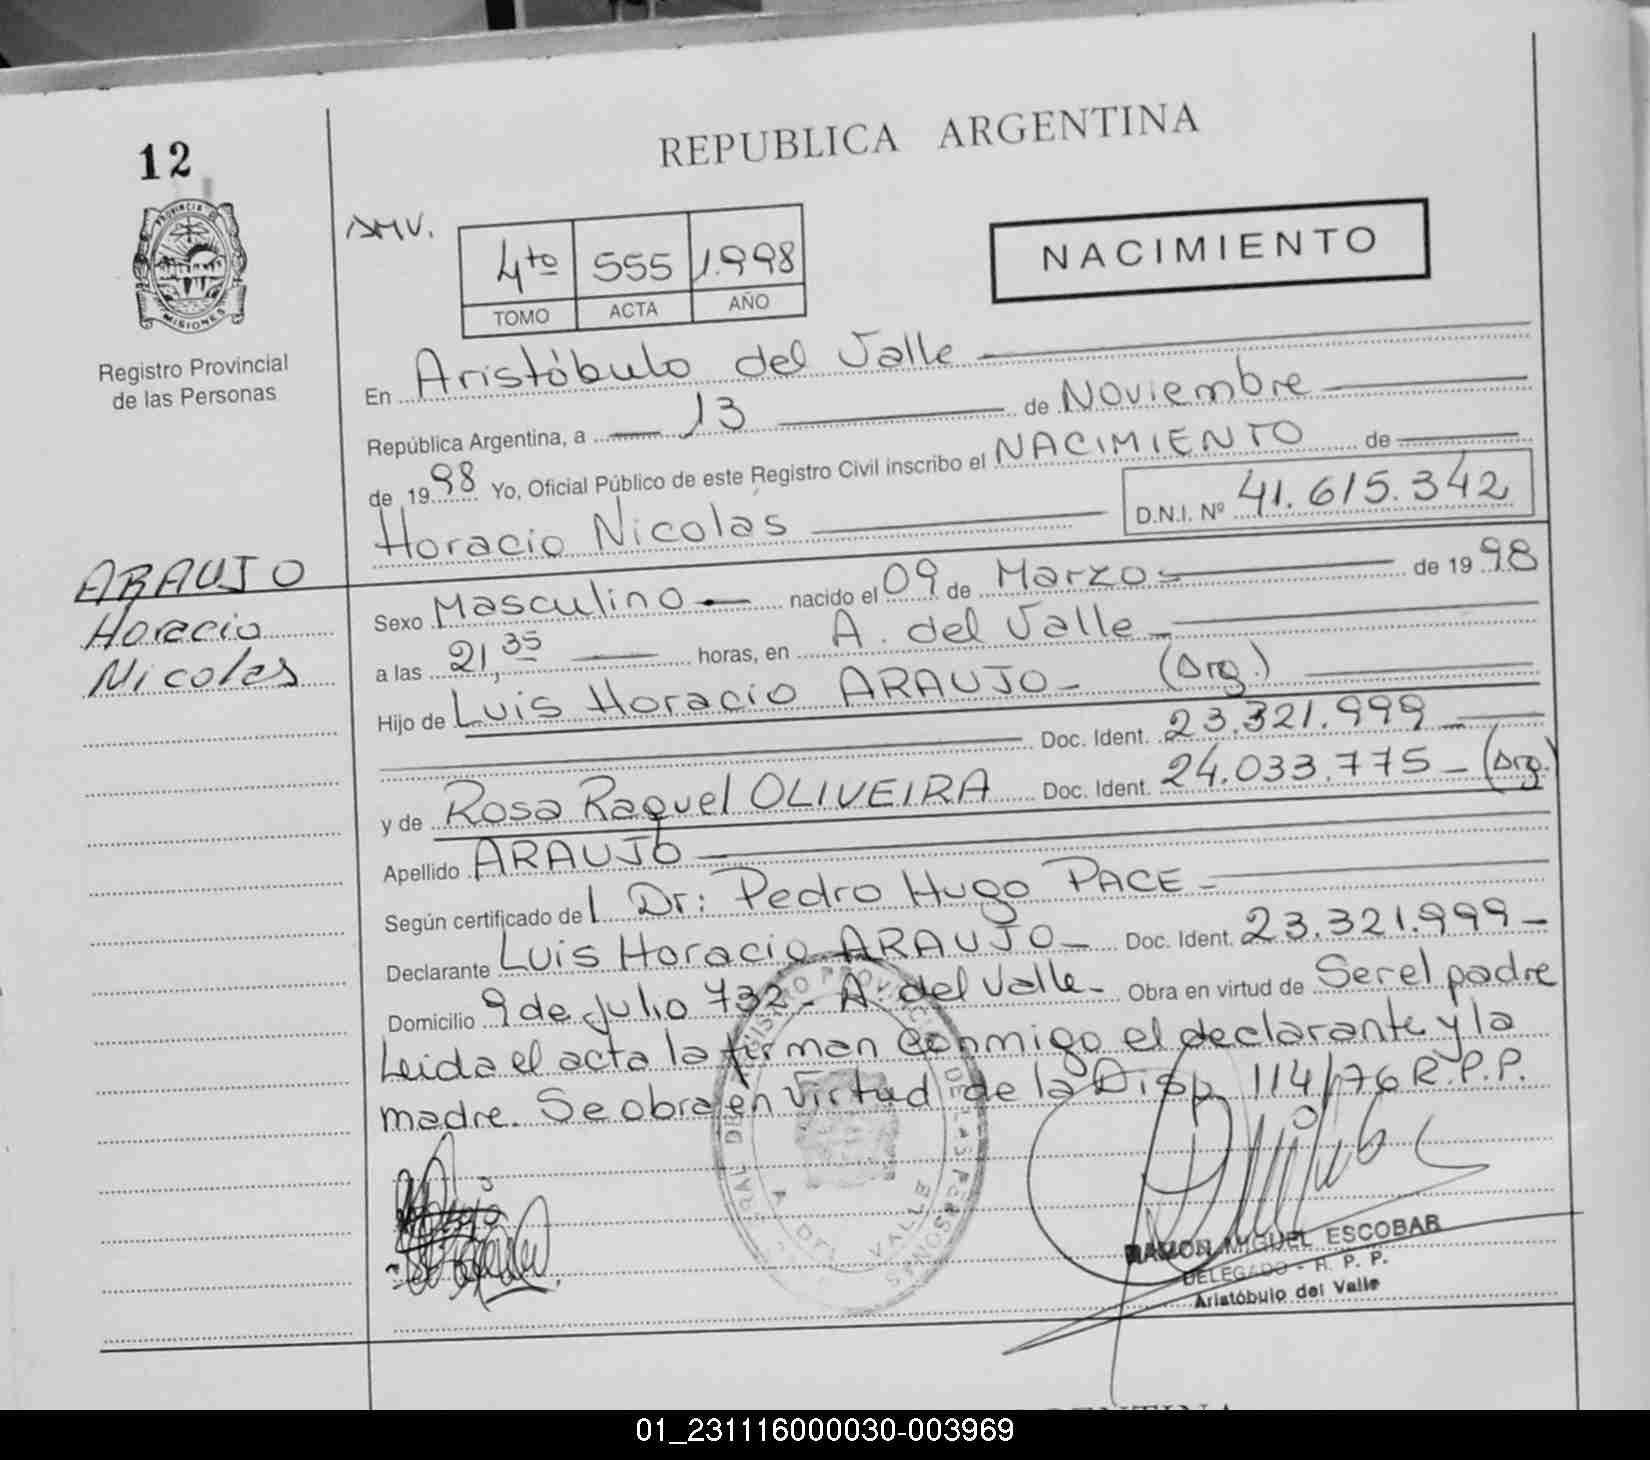 12
REPUBLICA ARGENTINA
PROVINCIA DE
MISIONES
Registro Provincial
de las Personas
4to 555 1.998
TOMO ACTA AÑO
NACIMIENTO
En Aristóbulo del Valle
República Argentina, a 13 de Noviembre
de 1998 Yo, Oficial Público de este Registro Civil inscribo el NACIMIENTO de
Horacio Nicolas D.N.I. Nº 41.615.342
ARAUJO
Horacio
Nicolas
Sexo Masculino nacido el 09 de Marzo de 1998
a las 21,35 horas, en A. del Valle
Hijo de Luis Horacio ARAUJO (Arg.)
Doc. Ident. 23.321.999
y de Rosa Raquel OLIVEIRA Doc. Ident. 24.033.775 (Arg.)
Apellido ARAUJO
Según certificado del Dr: Pedro Hugo PACE
Declarante Luis Horacio ARAUJO Doc. Ident. 23.321.999
Domicilio 9 de Julio 732 - A. del Valle Obra en virtud de Ser el padre
Leida el acta la firman conmigo el declarante y la
madre. Se obra en virtud de la Disp. 114/76 R.P.P.
A. DEL VALLE
RAMON MIGUEL ESCOBAR
DELEGADO - R. P. P.
Aristóbulo del Valle
01_231116000030-003969